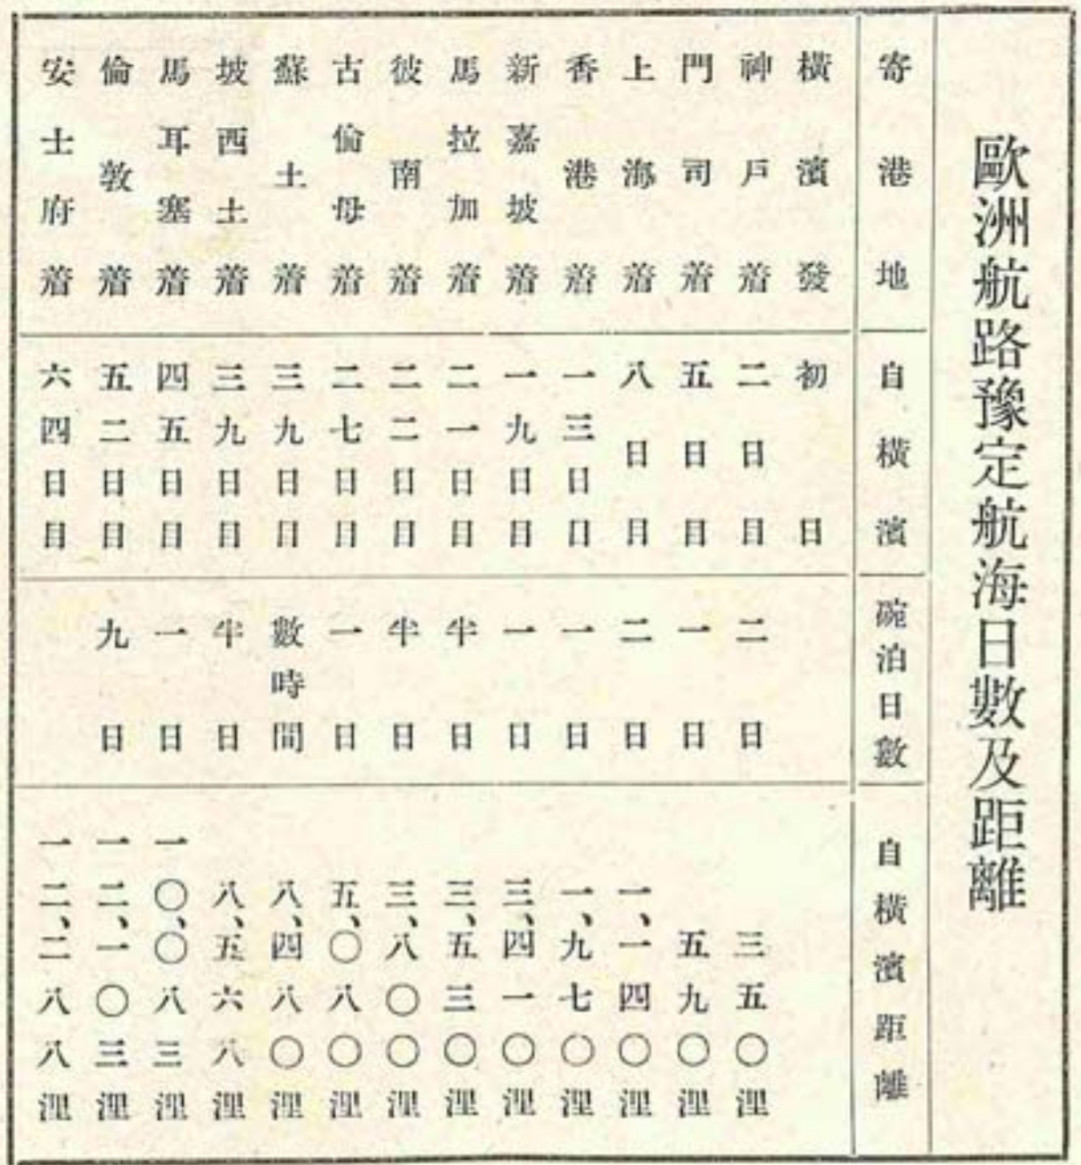 歐洲航路豫定航海日數及距離
寄港地 自橫濱 碇泊日數 自橫濱距離
橫濱發 初日
神戶着 二日目 二日 三五〇浬
門司着 五日目 一日 五九〇浬
上海着 八日目 二日 一、一四〇浬
香港着 一三日目 一日 一、九七〇浬
新嘉坡着 一九日目 一日 三、四一〇浬
馬拉加着 二一日目 半日 三、五三〇浬
彼南着 二二日目 半日 三、八〇〇浬
古倫母着 二七日目 一日 五、〇八〇浬
蘇土着 三九日目 數時間 八、四八〇浬
坡西土着 三九日目 半日 八、五六八浬
馬耳塞着 四五日目 一日 一〇、〇八三浬
倫敦着 五二日目 九日 一二、一〇三浬
安士府着 六四日目 一二、二八八浬